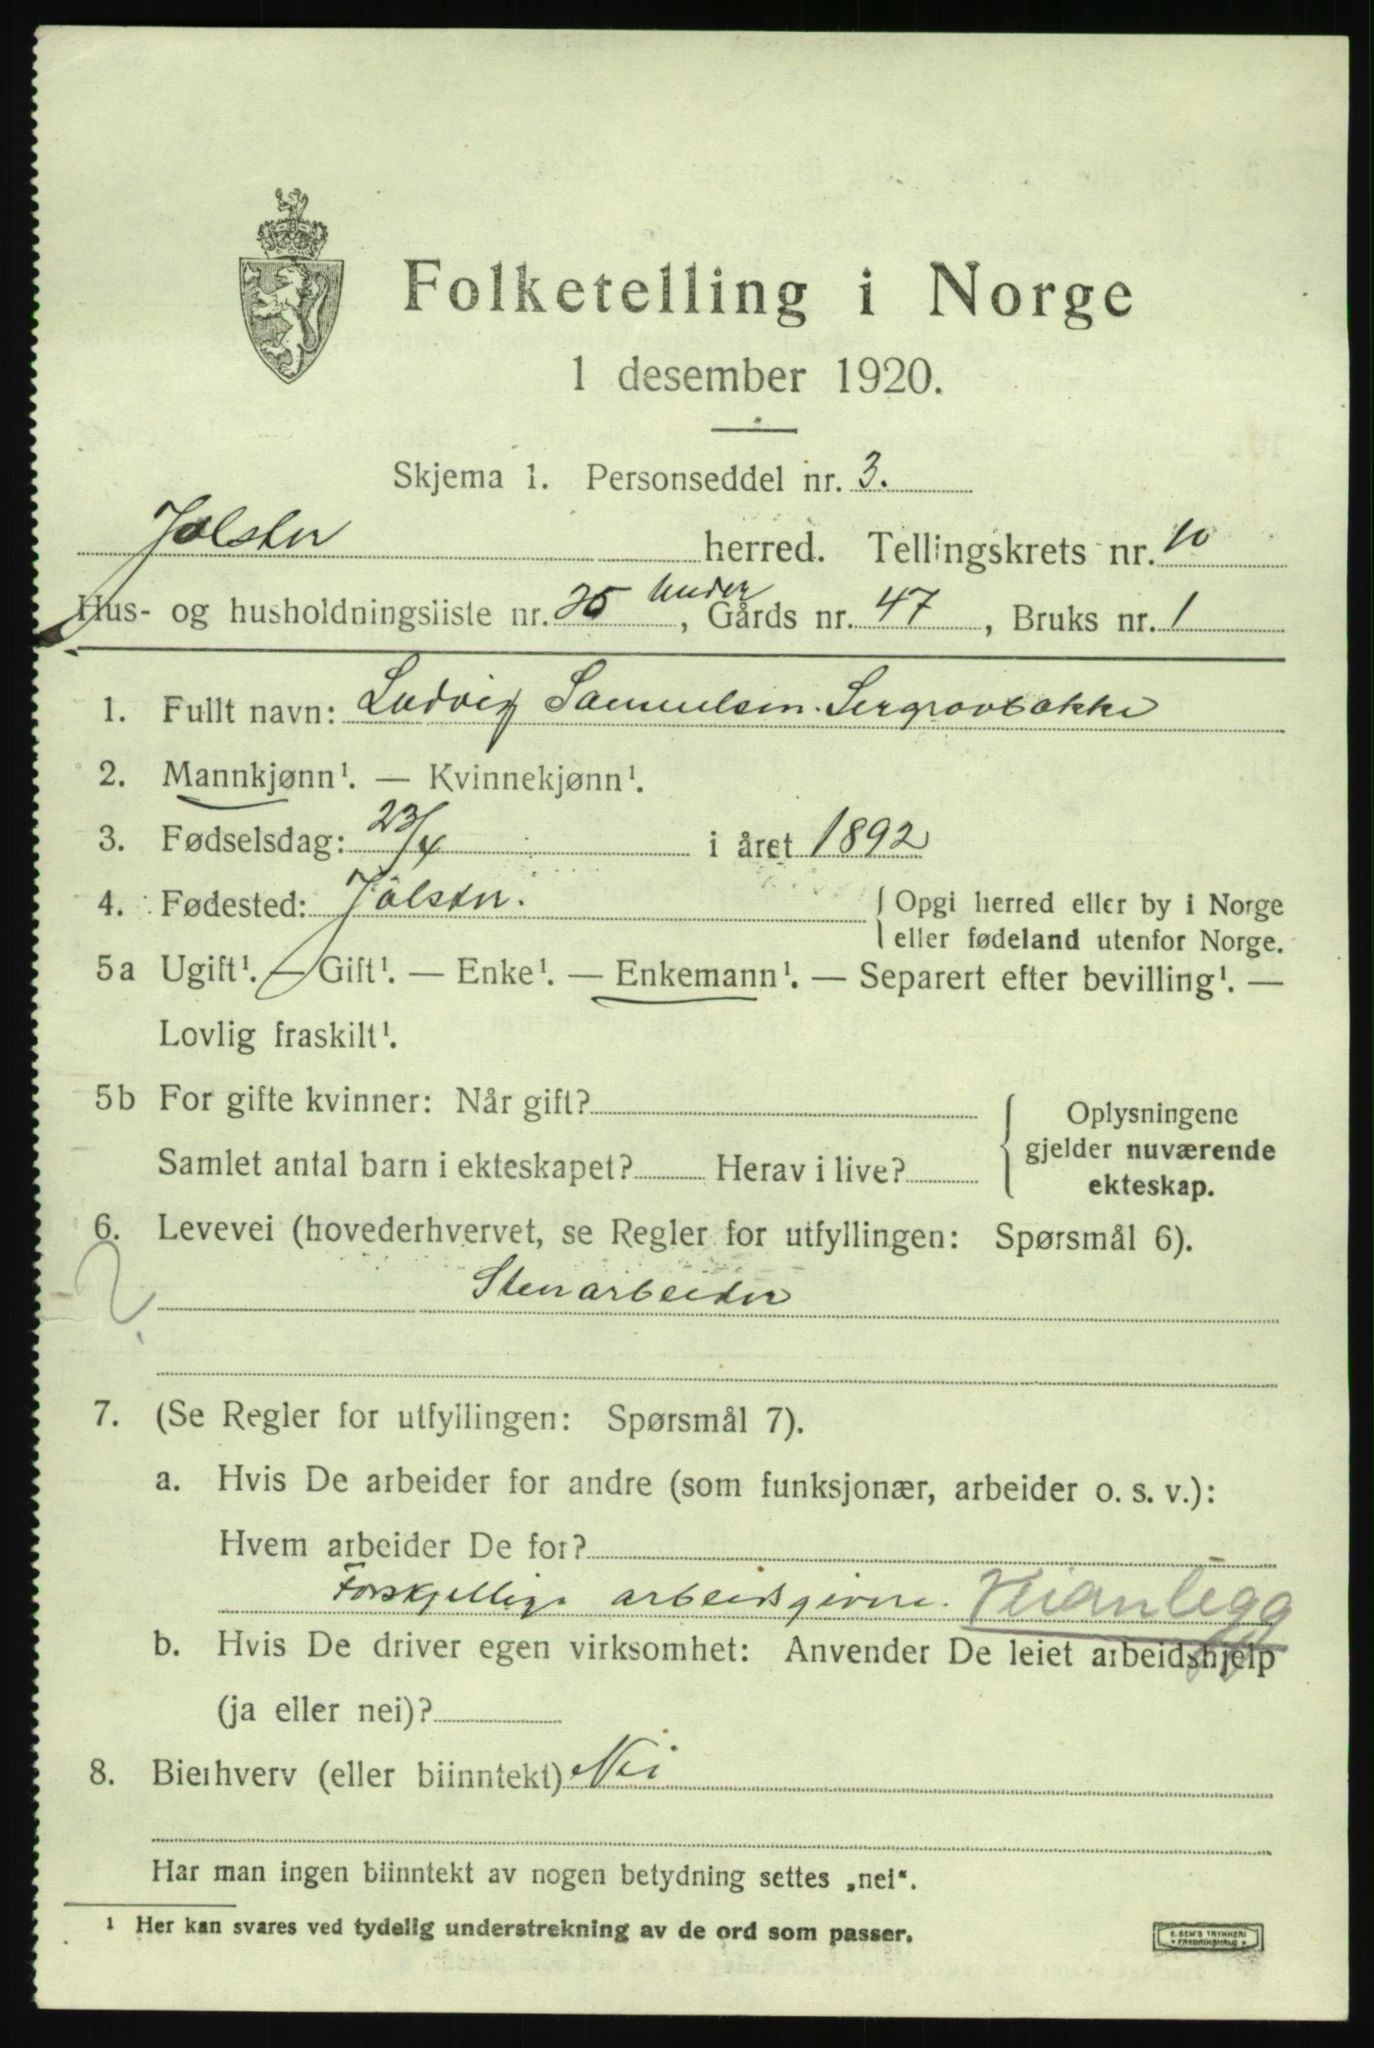 Folketelling i Norge
1 desember 1920.
Skjema 1. Personseddel nr. 3.
Jølster herred. Tellingskrets nr. 10
Hus- og husholdningsliste nr. 25 under, Gårds nr. 47, Bruks nr. 1
1. Fullt navn: Ludvig Samuelsen Sergravbakke
2. Mannkjønn¹. — Kvinnekjønn¹.
3. Fødselsdag: 23/4 i året 1892
4. Fødested: Jølster. { Opgi herred eller by i Norge
eller fødeland utenfor Norge.
5a Ugift¹. — Gift¹. — Enke¹. — Enkemann¹. — Separert efter bevilling¹. —
Lovlig fraskilt¹.
5b For gifte kvinner: Når gift?
Samlet antal barn i ekteskapet? Herav i live?
Oplysningene
gjelder nuværende
ekteskap.
6. Levevei (hovederhvervet, se Regler for utfyllingen: Spørsmål 6).
?
Stenarbeider
7. (Se Regler for utfyllingen: Spørsmål 7).
a. Hvis De arbeider for andre (som funksjonær, arbeider o. s. v.):
Hvem arbeider De for?
Forskjellige arbeidsgivere. Veianlegg
b. Hvis De driver egen virksomhet: Anvender De leiet arbeidshjelp
(ja eller nei)?
8. Bierhverv (eller biinntekt) Nei
Har man ingen biinntekt av nogen betydning settes „nei“.
¹ Her kan svares ved tydelig understrekning av de ord som passer.
E. SEM'S TRYKKERI
FREDRIKSHALD